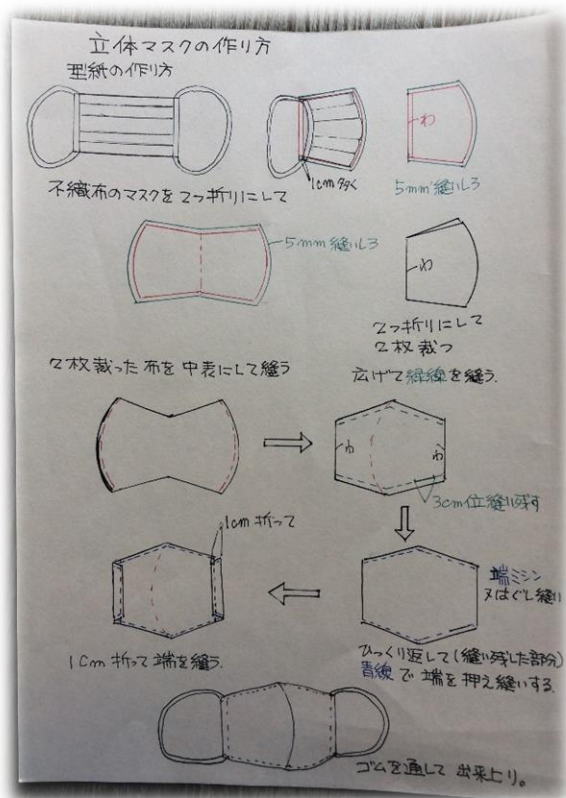 立体マスクの作り方
型紙の作り方
わ
1cm多く
5mm縫いしろ
不織布のマスクを2つ折りにして
5mm縫いしろ
わ
2つ折りにして
2枚裁つ
2枚裁った布を中表にして縫う
広げて緑線を縫う.
わ
わ
3cm位縫い残す
1cm折って
端ミシン
又はぐし縫い
1cm折って端を縫う.
ひっくり返して(縫い残した部分)
青線で端を押え縫いする.
ゴムを通して出来上り。